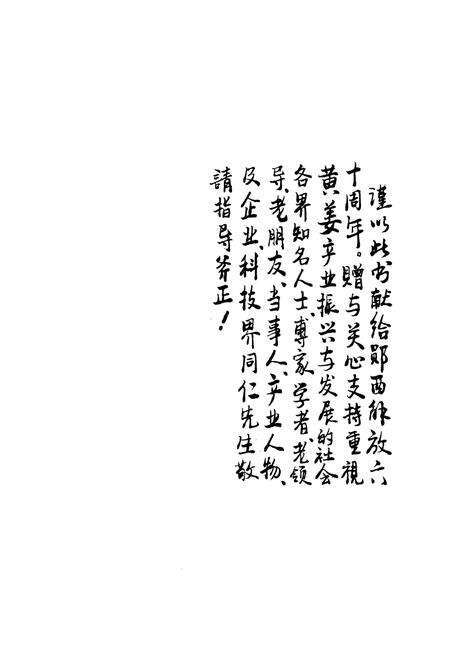 谨以此书献给郧西解放六
十周年。贈与关心支持重視
黄姜产业振兴与发展的社会
各界知名人士、專家学者、老领
导、老朋友、当事人、产业人物、
及企业、科技界同仁先生敬
請指导斧正！